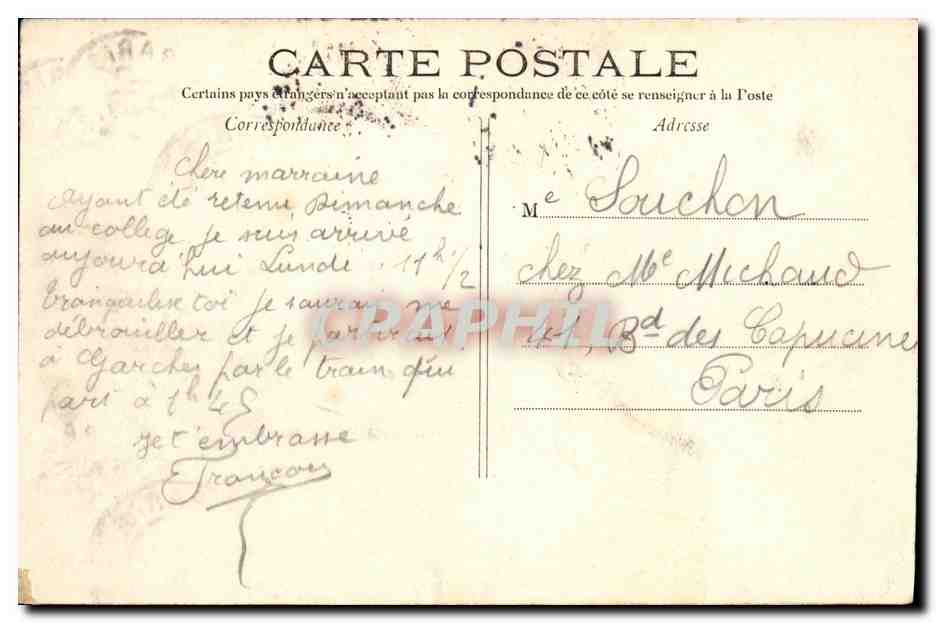 CARTE POSTALE
Certains pays étrangers n'acceptant pas la correspondance de ce côté se renseigner à la Poste
Correspondance
Chère marraine
Ayant été retenu Dimanche
au collège, je suis arrivé
aujourd'hui Lundi 11h 1/2
tranquilise toi je saurai me
débrouiller et je partirai
à Garches par le train qui
part à 1h 45
je t'embrasse
François
Adresse
Me Souchon
chéz Me Michaud
41, Bd des Capucine
Paris
CPAPHIL